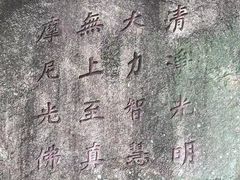 清淨光明
大力智慧
無上至真
摩尼光佛